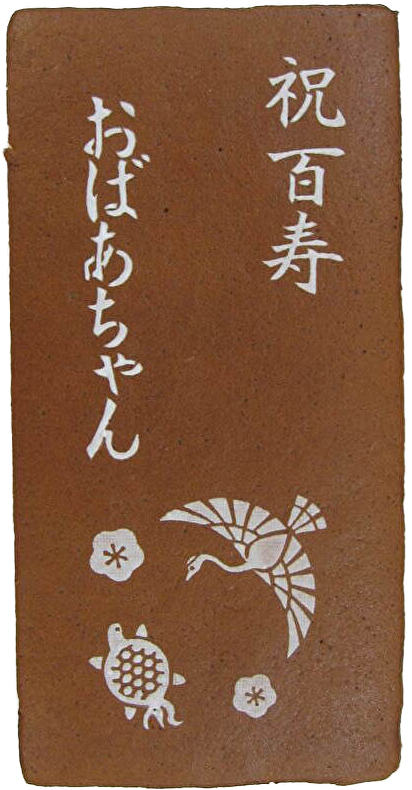 祝百寿
おばあちゃん